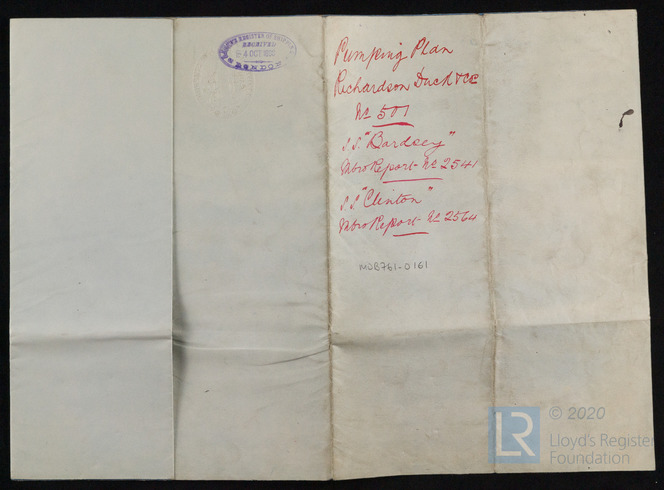 LLOYD'S REGISTER OF SHIPPING
RECEIVED
4 OCT
LONDON
Pumping Plan
Richardson Duck & Co
No 501
S.S. "Bardsey"
Mbro Report No 2541
S.S. "Clinton"
Mbro Report No 2564
MDB761-0161
LR
© 2020
Lloyd's Register
Foundation